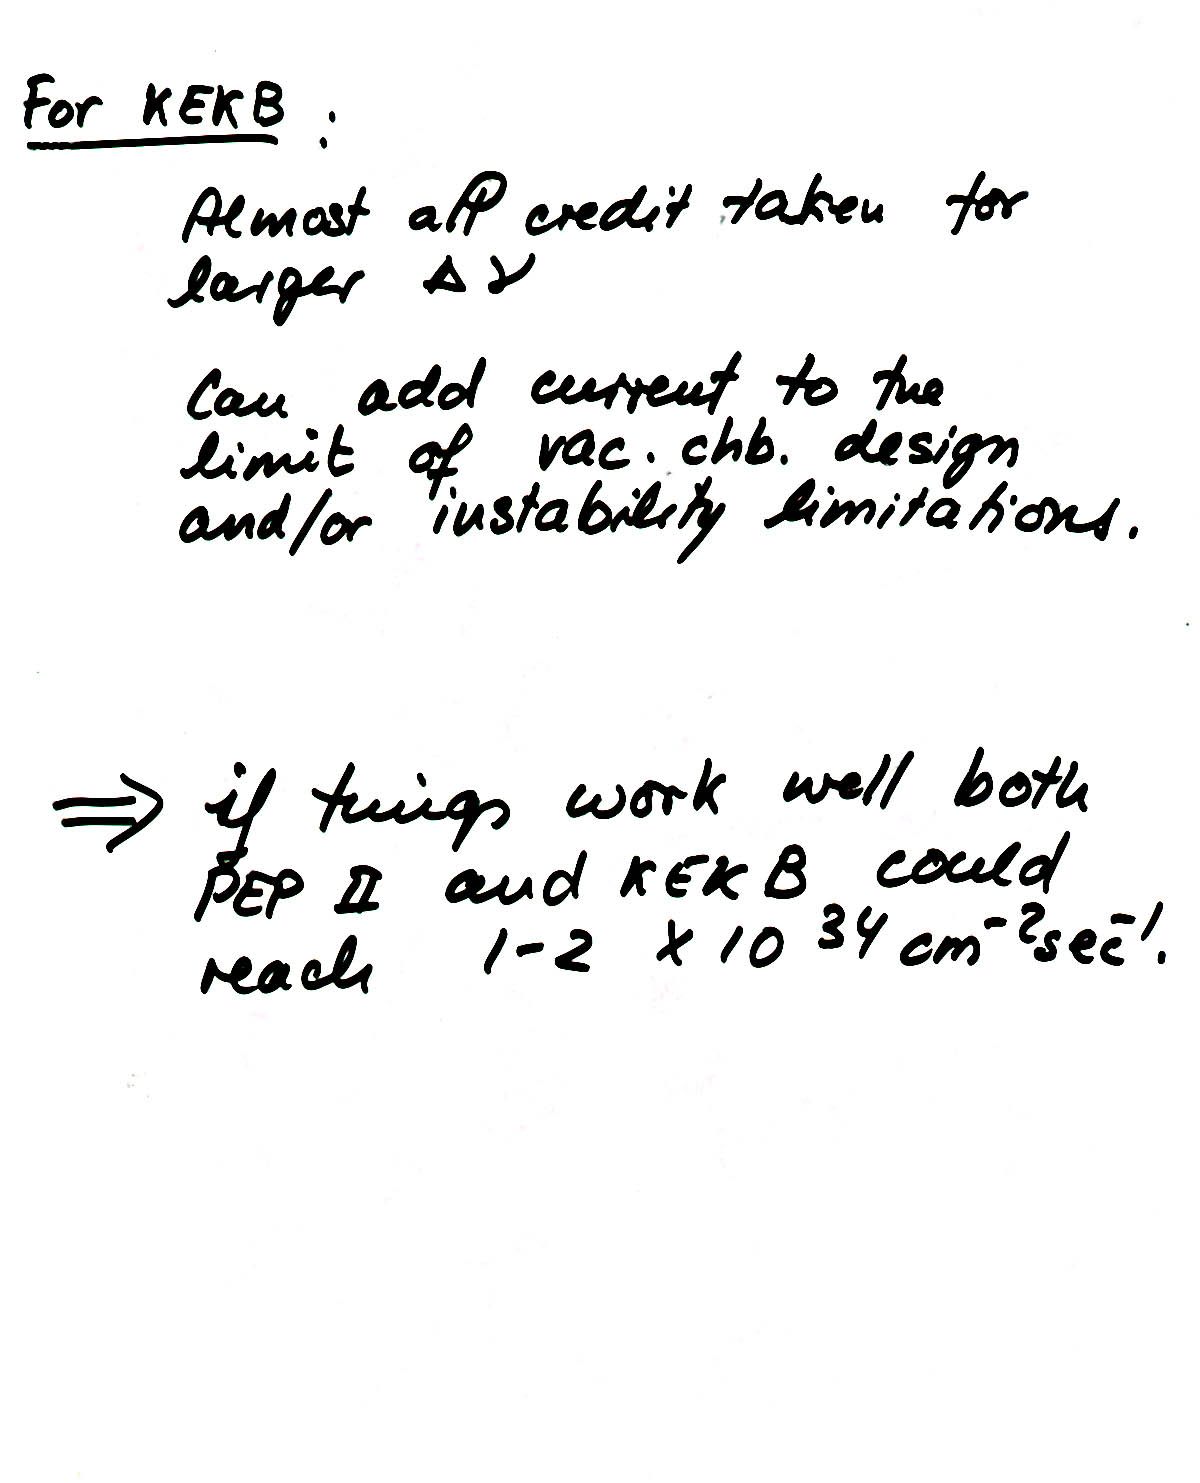 For KEKB :
Almost all credit taken for
larger Δν
Can add current to the
limit of vac. chb. design
and/or instability limitations.
⇒ if things work well both
PEP II and KEKB could
reach 1-2 × 10³⁴ cm⁻² sec⁻¹.